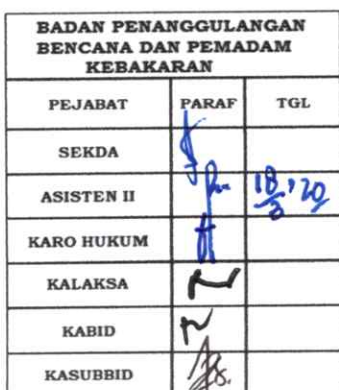 BADAN PENANGGULANGAN
BENCANA DAN PEMADAM
KEBAKARAN
PEJABAT PARAF TGL
SEKDA
ASISTEN II
KARO HUKUM
KALAKSA
KABID
KASUBBID